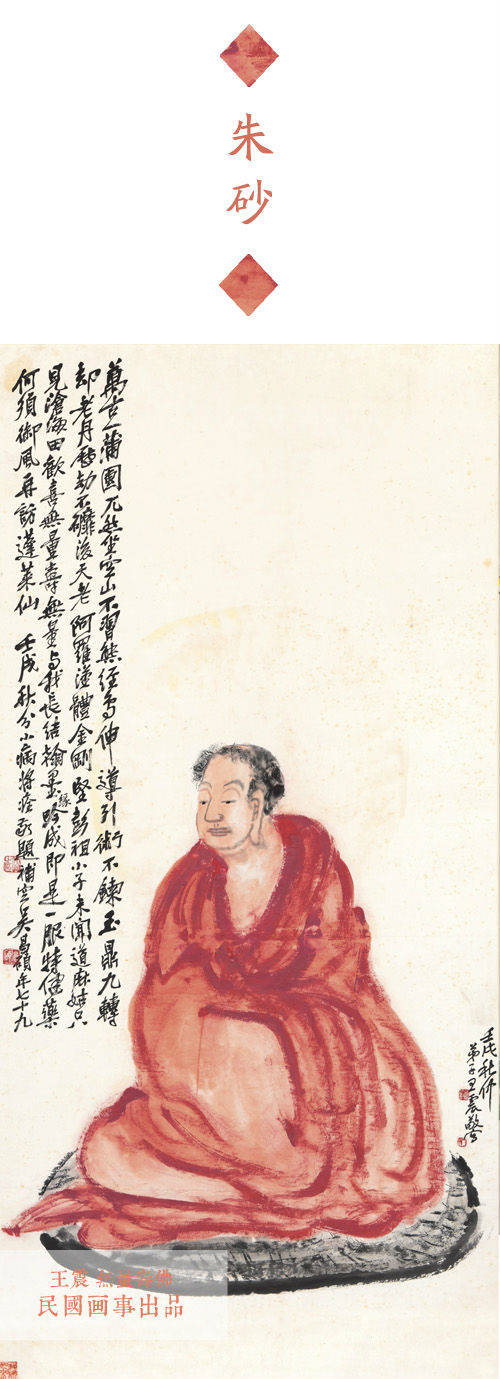 朱砂
萬古一蒲團兀然坐空山不習熊經鳥伸導引術不鍊玉鼎九轉
却老丹歷劫不磷後天老阿羅漢體金剛堅彭祖小子未聞道麻姑只
見滄海田歡喜無量壽無量与我長結翰墨緣吟成即是一服特健藥
何須御風再訪蓬萊仙 壬戌秋分小病將痊敬題補空吳昌碩年七十九
壬戌秋仲
弟子王震敬寫
王震 無量壽佛
民國画事出品